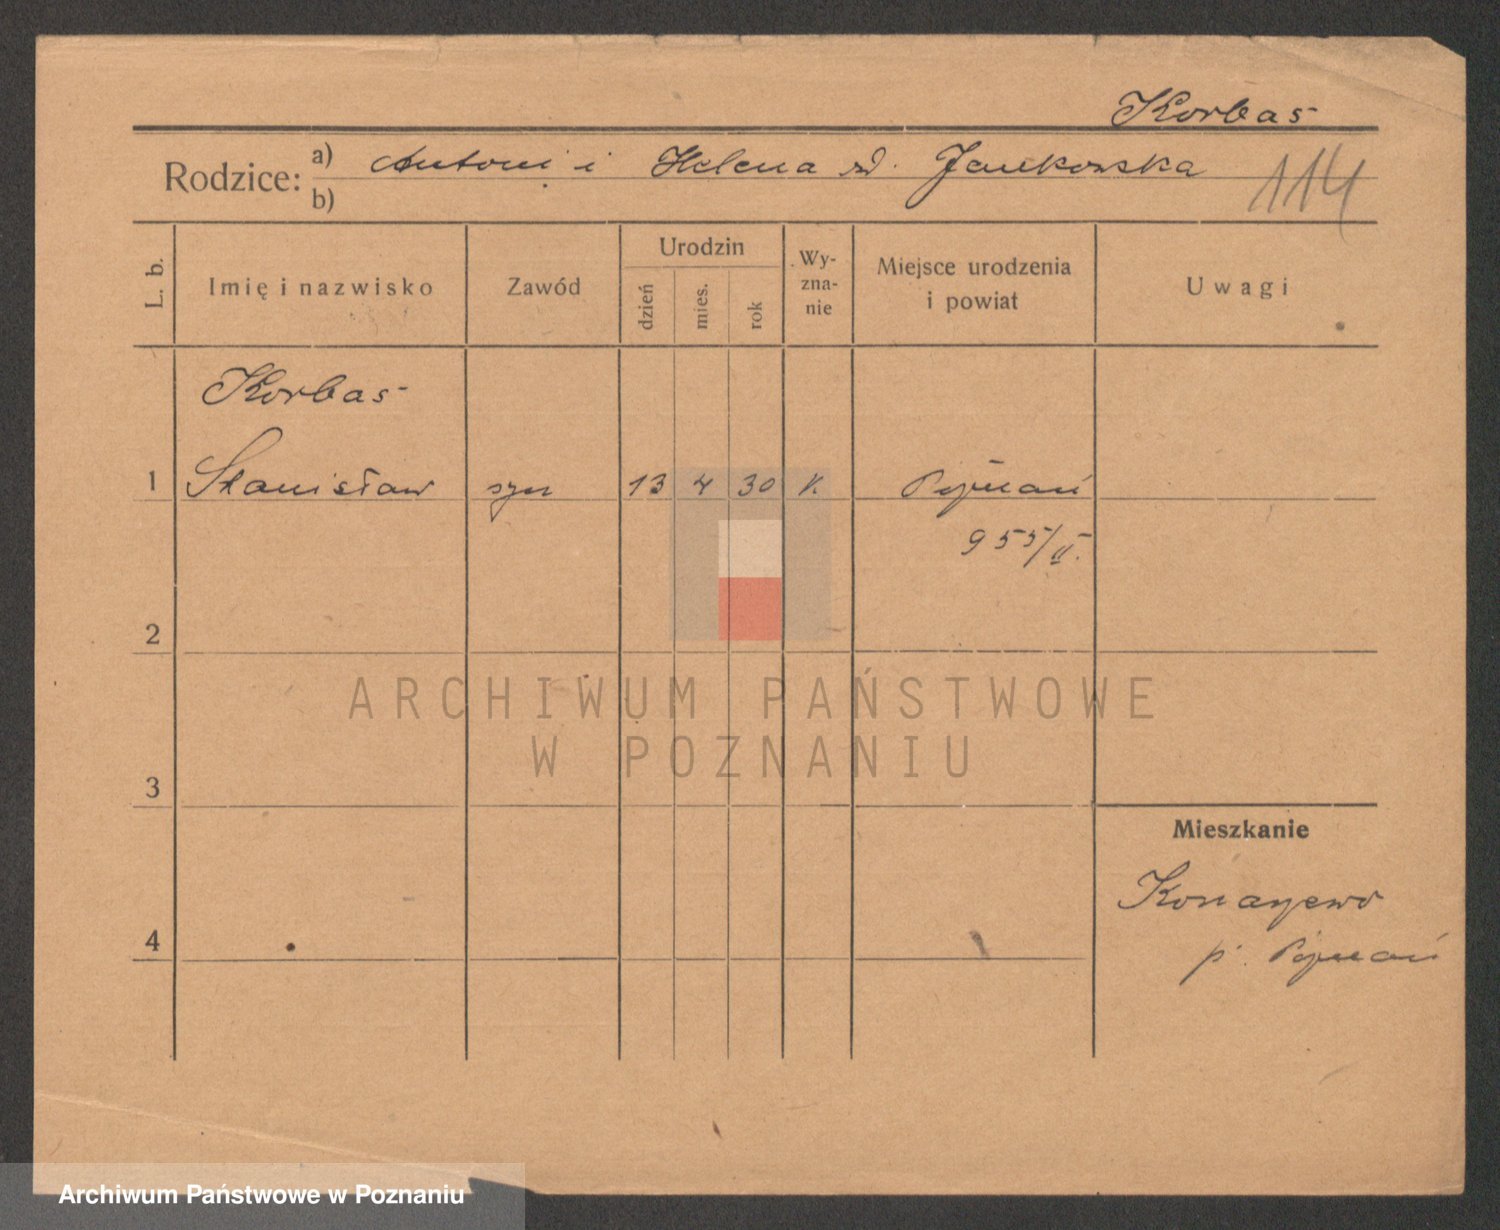 Korbas
Rodzice: a) Antoni i Helena rd. Jankowska
b)
114
L. b. Imię i nazwisko Zawód Urodzin dzień mies. rok Wy-zna-nie Miejsce urodzenia i powiat Uwagi
Korbas
1 Stanisław syn 13 4 30 k. Poznań
955/II.
2
ARCHIWUM PAŃSTWOWE
W POZNANIU
3
Mieszkanie
Konarzewo
4
p. Poznań
Archiwum Państwowe w Poznaniu